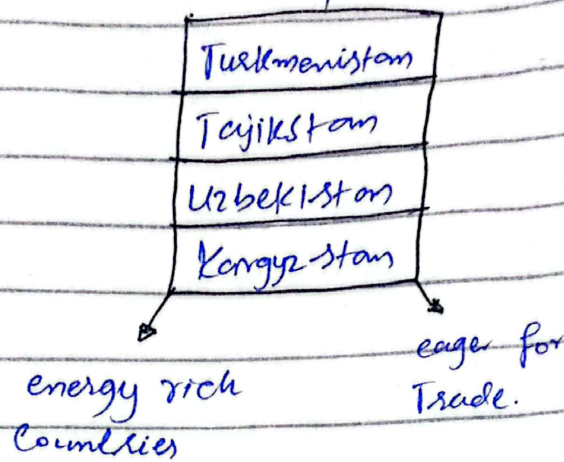 Turkmenistan
Tajikstan
Uzbekistan
Kargyzstan
energy rich
Countries
eager for
Trade.